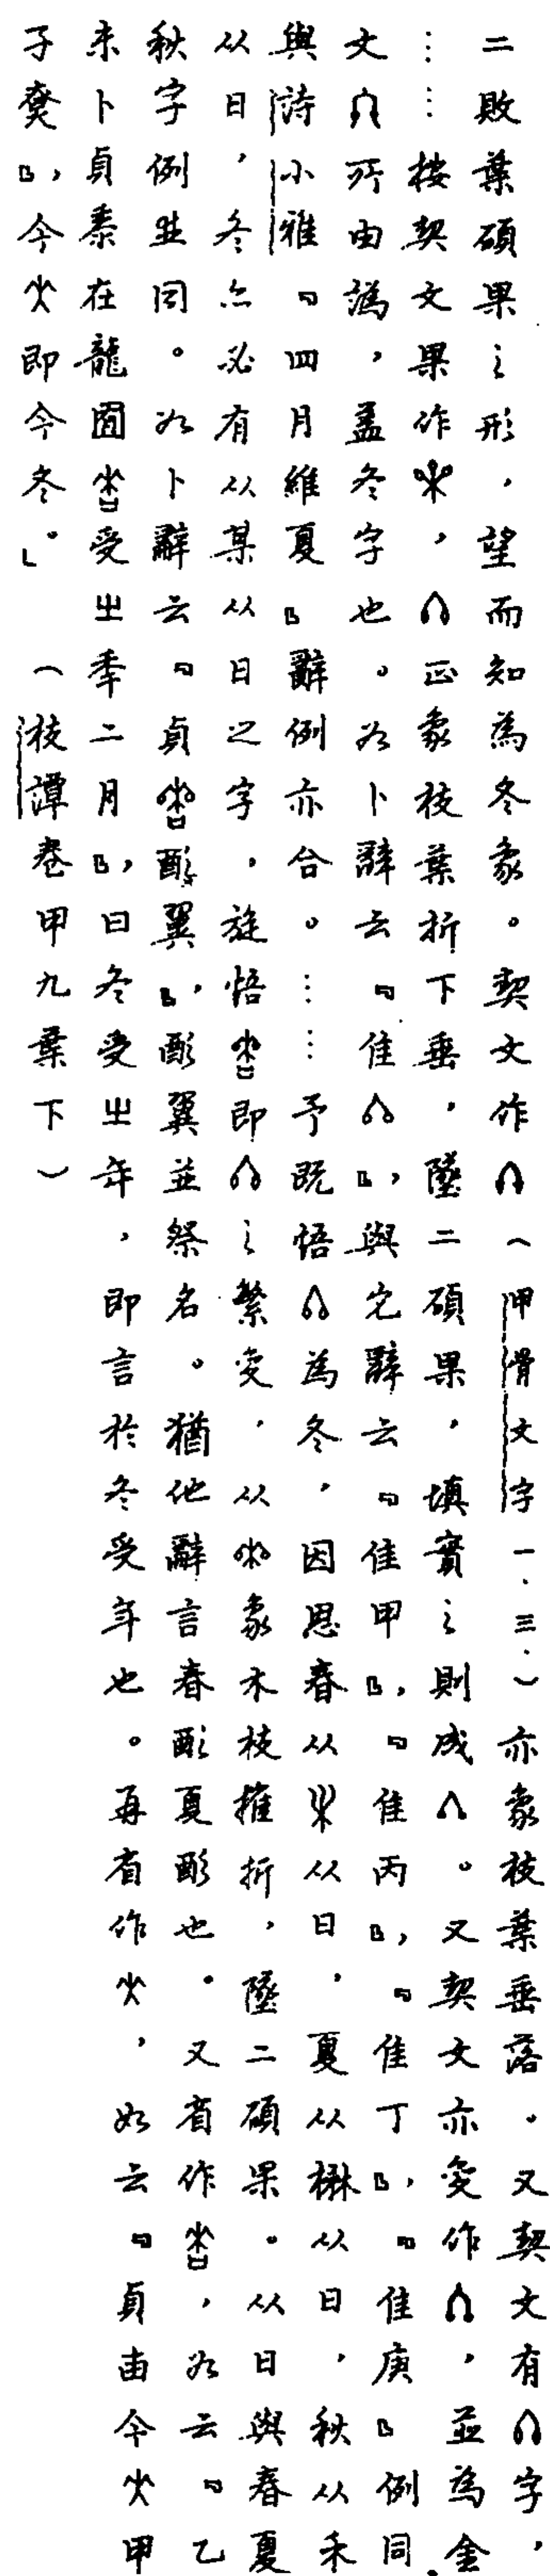 二敗葉碩果之形，望而知為冬象。契文作（甲骨文字一．三．）亦象枝葉垂落。又契文有字，
……按契文果作，正象枝葉折下垂，墜二碩果，填實之則成。又契文亦變作，並為金
文所由譌，蓋冬字也。如卜辭云『隹』，與它辭云『隹甲』，『隹丙』，『隹丁』，『隹庚』例同
與詩小雅『四月維夏』辭例亦合。……予既悟為冬，因思春从从日，夏从楙从日，秋从禾
从日，冬亦必有从某从日之字，旋悟即之繁變，从象木枝摧折，墜二碩果。从日與春夏
秋字例並同。如卜辭云『貞酻翼』，酻翼並祭名。猶他辭言春酻夏酻也。又有作，如云『乙
未卜貞黍在龍囿受㞢季二月』，曰冬受㞢年，即言於冬受年也。再有作，如云『貞由今甲
子𤉡』，今即今冬。」（枝譚卷甲九葉下）